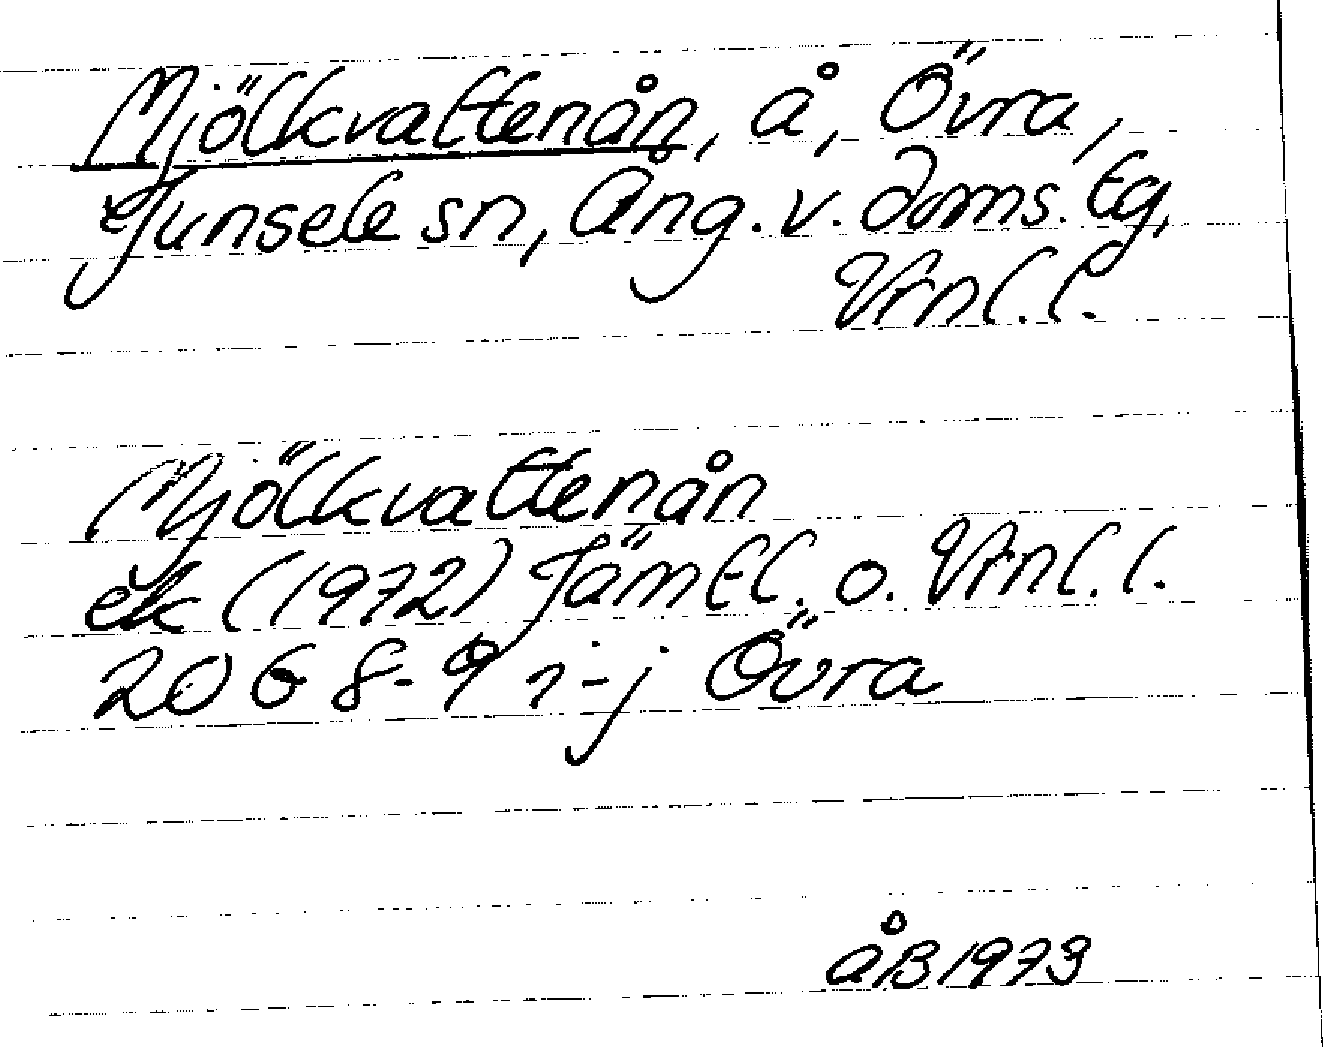 Mjölkvattenån, å, Övra,
Junsele sn, Ång. v. doms. tg,
Vrnl. l.
Mjölkvattenån
ek (1972) Jämtl. o. Vrnl. l.
20 G 8-9 i-j Övra
åB 1973